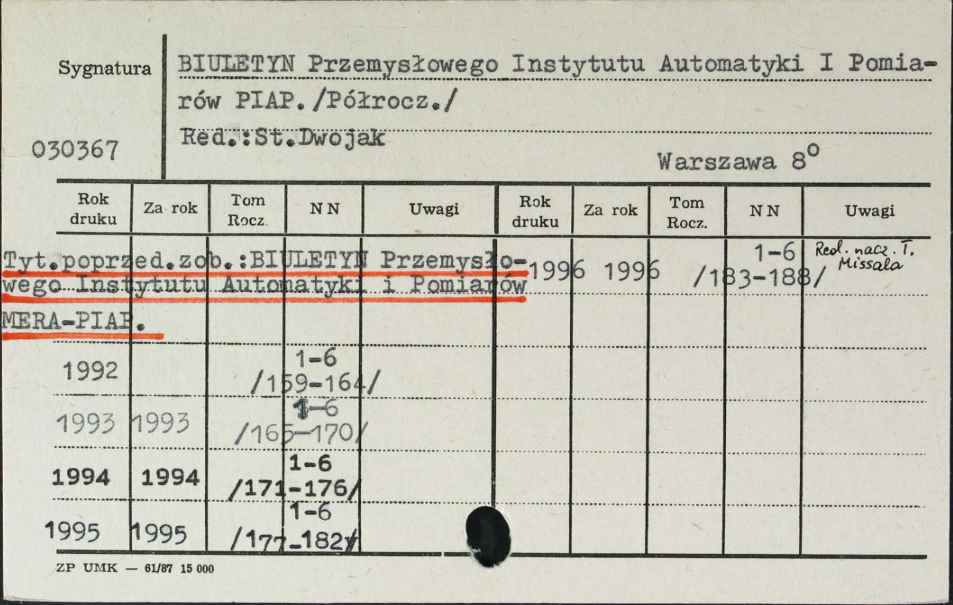 Sygnatura
BIULETYN Przemysłowego Instytutu Automatyki I Pomia-
rów PIAP./Półrocz./
Red.:St.Dwojak
030367
Warszawa 8°
Rok druku Za rok Tom Rocz. NN Uwagi Rok druku Za rok Tom Rocz. NN Uwagi
Tyt.poprzed.zob.:BIULETYN Przemysło-
wego Instytutu Automatyki i Pomiarów
MERA-PIAP.
1996 1996 1-6 /183-188/ Red. nacz. T. Missala
1992 1-6 /159-164/
1993 1993 1-6 /165-170/
1994 1994 1-6 /171-176/
1995 1995 1-6 /177-182/
ZP UMK — 61/87 15 000